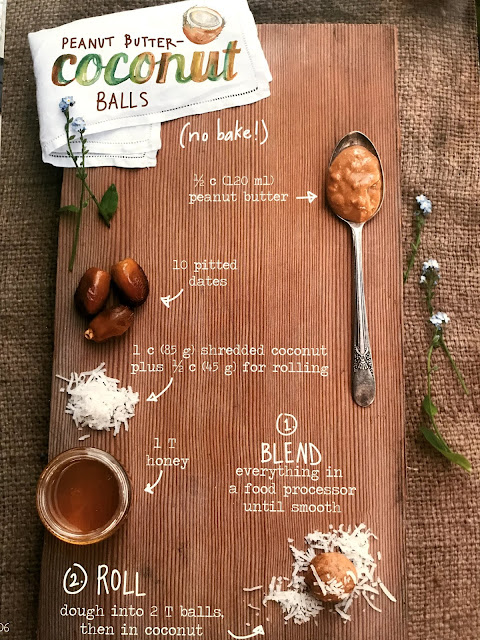 PEANUT BUTTER-
coconut
BALLS
(no bake!)
½ c (120 ml)
peanut butter
10 pitted
dates
1 c (85 g) shredded coconut
plus ½ c (45 g) for rolling
1 T
honey
1
BLEND
everything in
a food processor
until smooth
2 ROLL
dough into 2 T balls,
then in coconut
06